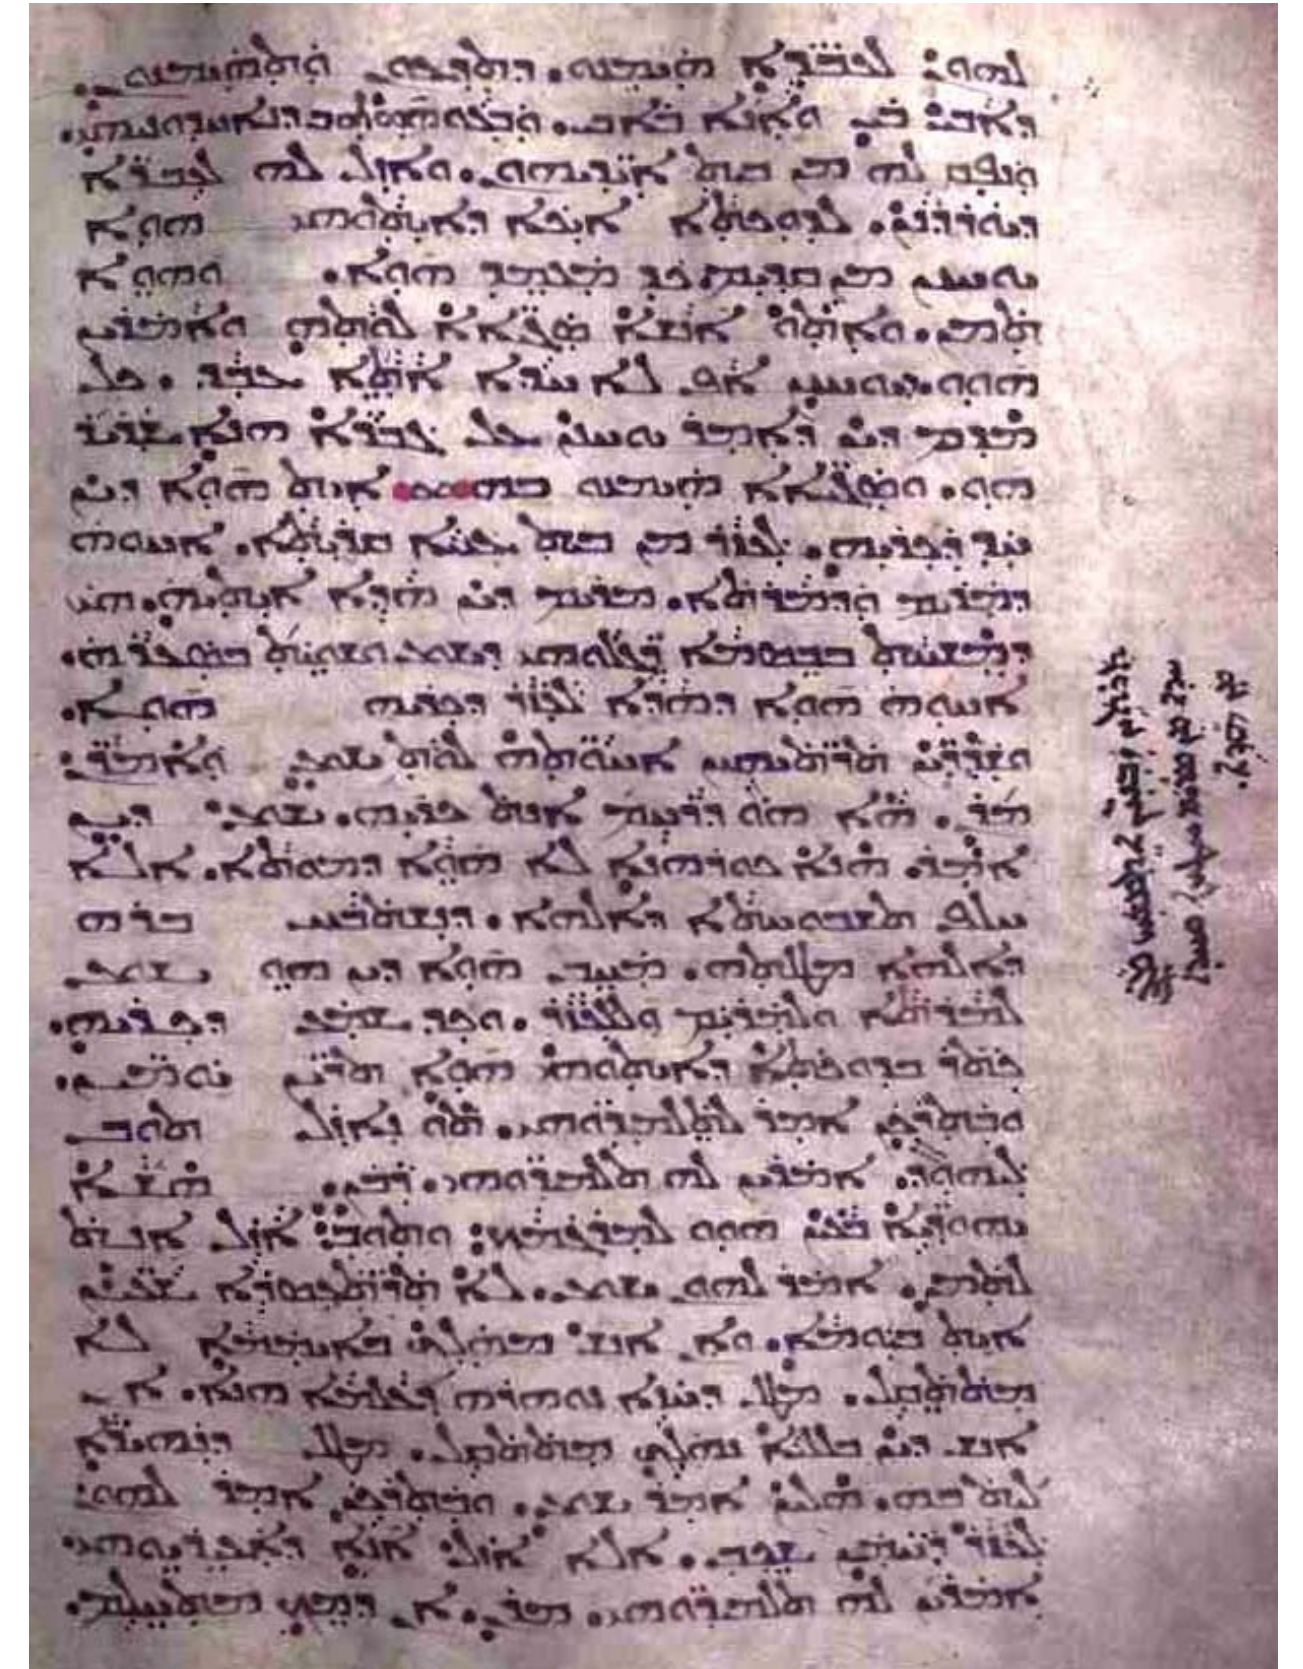 ܠܗܘܢ ܠܥܒܕܐ ܗܝܡܢܘ. ܕܬܕܥܘܢ ܘܬܗܝܡܢܘܢ.
ܕܐܒܝ ܒܝ ܘܐܢܐ ܒܐܒܝ. ܘܒܥܘ ܗܘܘ ܬܘܒ ܕܢܐܚܕܘܢܝܗܝ.
ܘܢܦܩ ܠܗ ܡܢ ܒܝܬ ܐܝܕܝܗܘܢ. ܘܐܙܠ ܠܗ ܠܥܒܪܐ
ܕܝܘܪܕܢܢ. ܠܕܘܟܬܐ ܐܝܟܐ ܕܐܝܬܘܗܝ ܗܘܐ
ܝܘܚܢܢ ܡܢ ܩܕܝܡ ܟܕ ܡܥܡܕ ܗܘܐ. ܘܗܘܐ
ܬܡܢ. ܘܐܬܘ ܐܢܫܐ ܣܓܝܐܐ ܠܘܬܗ ܘܐܡܪܝܢ
ܗܘܘ. ܕܝܘܚܢܢ ܐܦ ܠܐ ܚܕܐ ܐܬܐ ܥܒܕ. ܟܠ
ܡܕܡ ܕܝܢ ܕܐܡܪ ܝܘܚܢܢ ܥܠ ܓܒܪܐ ܗܢܐ ܫܪܝܪ
ܗܘ. ܘܣܓܝܐܐ ܗܝܡܢܘ ܒܗ. ܐܝܬ ܗܘܐ ܕܝܢ
ܚܕ ܕܟܪܝܗ. ܠܥܙܪ ܡܢ ܒܝܬ ܥܢܝܐ ܩܪܝܬܐ. ܐܚܘܗ
ܕܡܪܝܡ ܘܕܡܪܬܐ. ܡܪܝܡ ܕܝܢ ܗܕܐ ܐܝܬܝܗ. ܗܝ
ܕܡܫܚܬ ܒܒܣܡܐ ܪܓܠܘܗܝ ܕܝܫܘܥ ܘܫܘܝܬ ܒܣܥܪܗ.
ܐܚܘܗ ܗܘܐ ܕܗܕܐ ܠܥܙܪ ܕܟܪܝܗ ܗܘܐ.
ܘܫܕܪܝܢ ܬܪܬܝܗܝܢ ܐܚܘܬܗ ܠܘܬ ܝܫܘܥ ܘܐܡܪܢ
ܡܪܢ. ܗܐ ܗܘ ܕܪܚܡ ܐܢܬ ܟܪܝܗ. ܝܫܘܥ ܕܝܢ
ܐܡܪ. ܗܢܐ ܟܘܪܗܢܐ ܠܐ ܗܘܐ ܕܡܘܬܐ. ܐܠܐ
ܚܠܦ ܬܫܒܘܚܬܐ ܕܐܠܗܐ. ܕܢܫܬܒܚ ܒܪܗ
ܕܐܠܗܐ ܡܛܠܬܗ. ܡܚܒ ܗܘܐ ܕܝܢ ܗܘ ܝܫܘܥ
ܠܡܪܬܐ ܘܠܡܪܝܡ ܘܠܠܥܙܪ. ܘܟܕ ܫܡܥ ܕܟܪܝܗ.
ܟܬܪ ܒܕܘܟܬܐ ܕܐܝܬܘܗܝ ܗܘܐ ܬܪܝܢ ܝܘܡܝܢ.
ܘܒܬܪܟܢ ܐܡܪ ܠܬܠܡܝܕܘܗܝ. ܬܘ ܢܐܙܠ ܬܘܒ
ܠܝܗܘܕ. ܐܡܪܝܢ ܠܗ ܬܠܡܝܕܘܗܝ. ܪܒܢ. ܗܫܐ
ܝܗܘܕܝܐ ܒܥܝܢ ܗܘܘ ܠܡܪܓܡܟ: ܘܬܘܒ ܐܙܠ ܐܢܬ
ܠܬܡܢ. ܐܡܪ ܠܗܘܢ ܝܫܘܥ. ܠܐ ܬܪܬܥܣܪܐ ܫܥܝܢ
ܐܝܬ ܒܝܘܡܐ. ܘܐܢ ܐܢܫ ܡܗܠܟ ܒܐܝܡܡܐ ܠܐ
ܡܬܬܩܠ. ܡܛܠ ܕܚܙܐ ܢܘܗܪܗ ܕܥܠܡܐ ܗܢܐ. ܐܢ
ܐܢܫ ܕܝܢ ܒܠܠܝܐ ܢܗܠܟ ܡܬܬܩܠ. ܡܛܠ ܕܢܗܝܪܐ
ܠܝܬ ܒܗ. ܗܠܝܢ ܐܡܪ ܝܫܘܥ. ܘܒܬܪܟܢ ܐܡܪ ܠܗܘܢ
ܠܥܙܪ ܪܚܡܢ ܫܟܒ. ܐܠܐ ܐܙܠ ܐܢܐ ܕܐܥܝܪܝܘܗܝ.
ܐܡܪܝܢ ܠܗ ܬܠܡܝܕܘܗܝ. ܡܪܢ. ܐܢ ܕܡܟ ܡܬܚܠܡ.